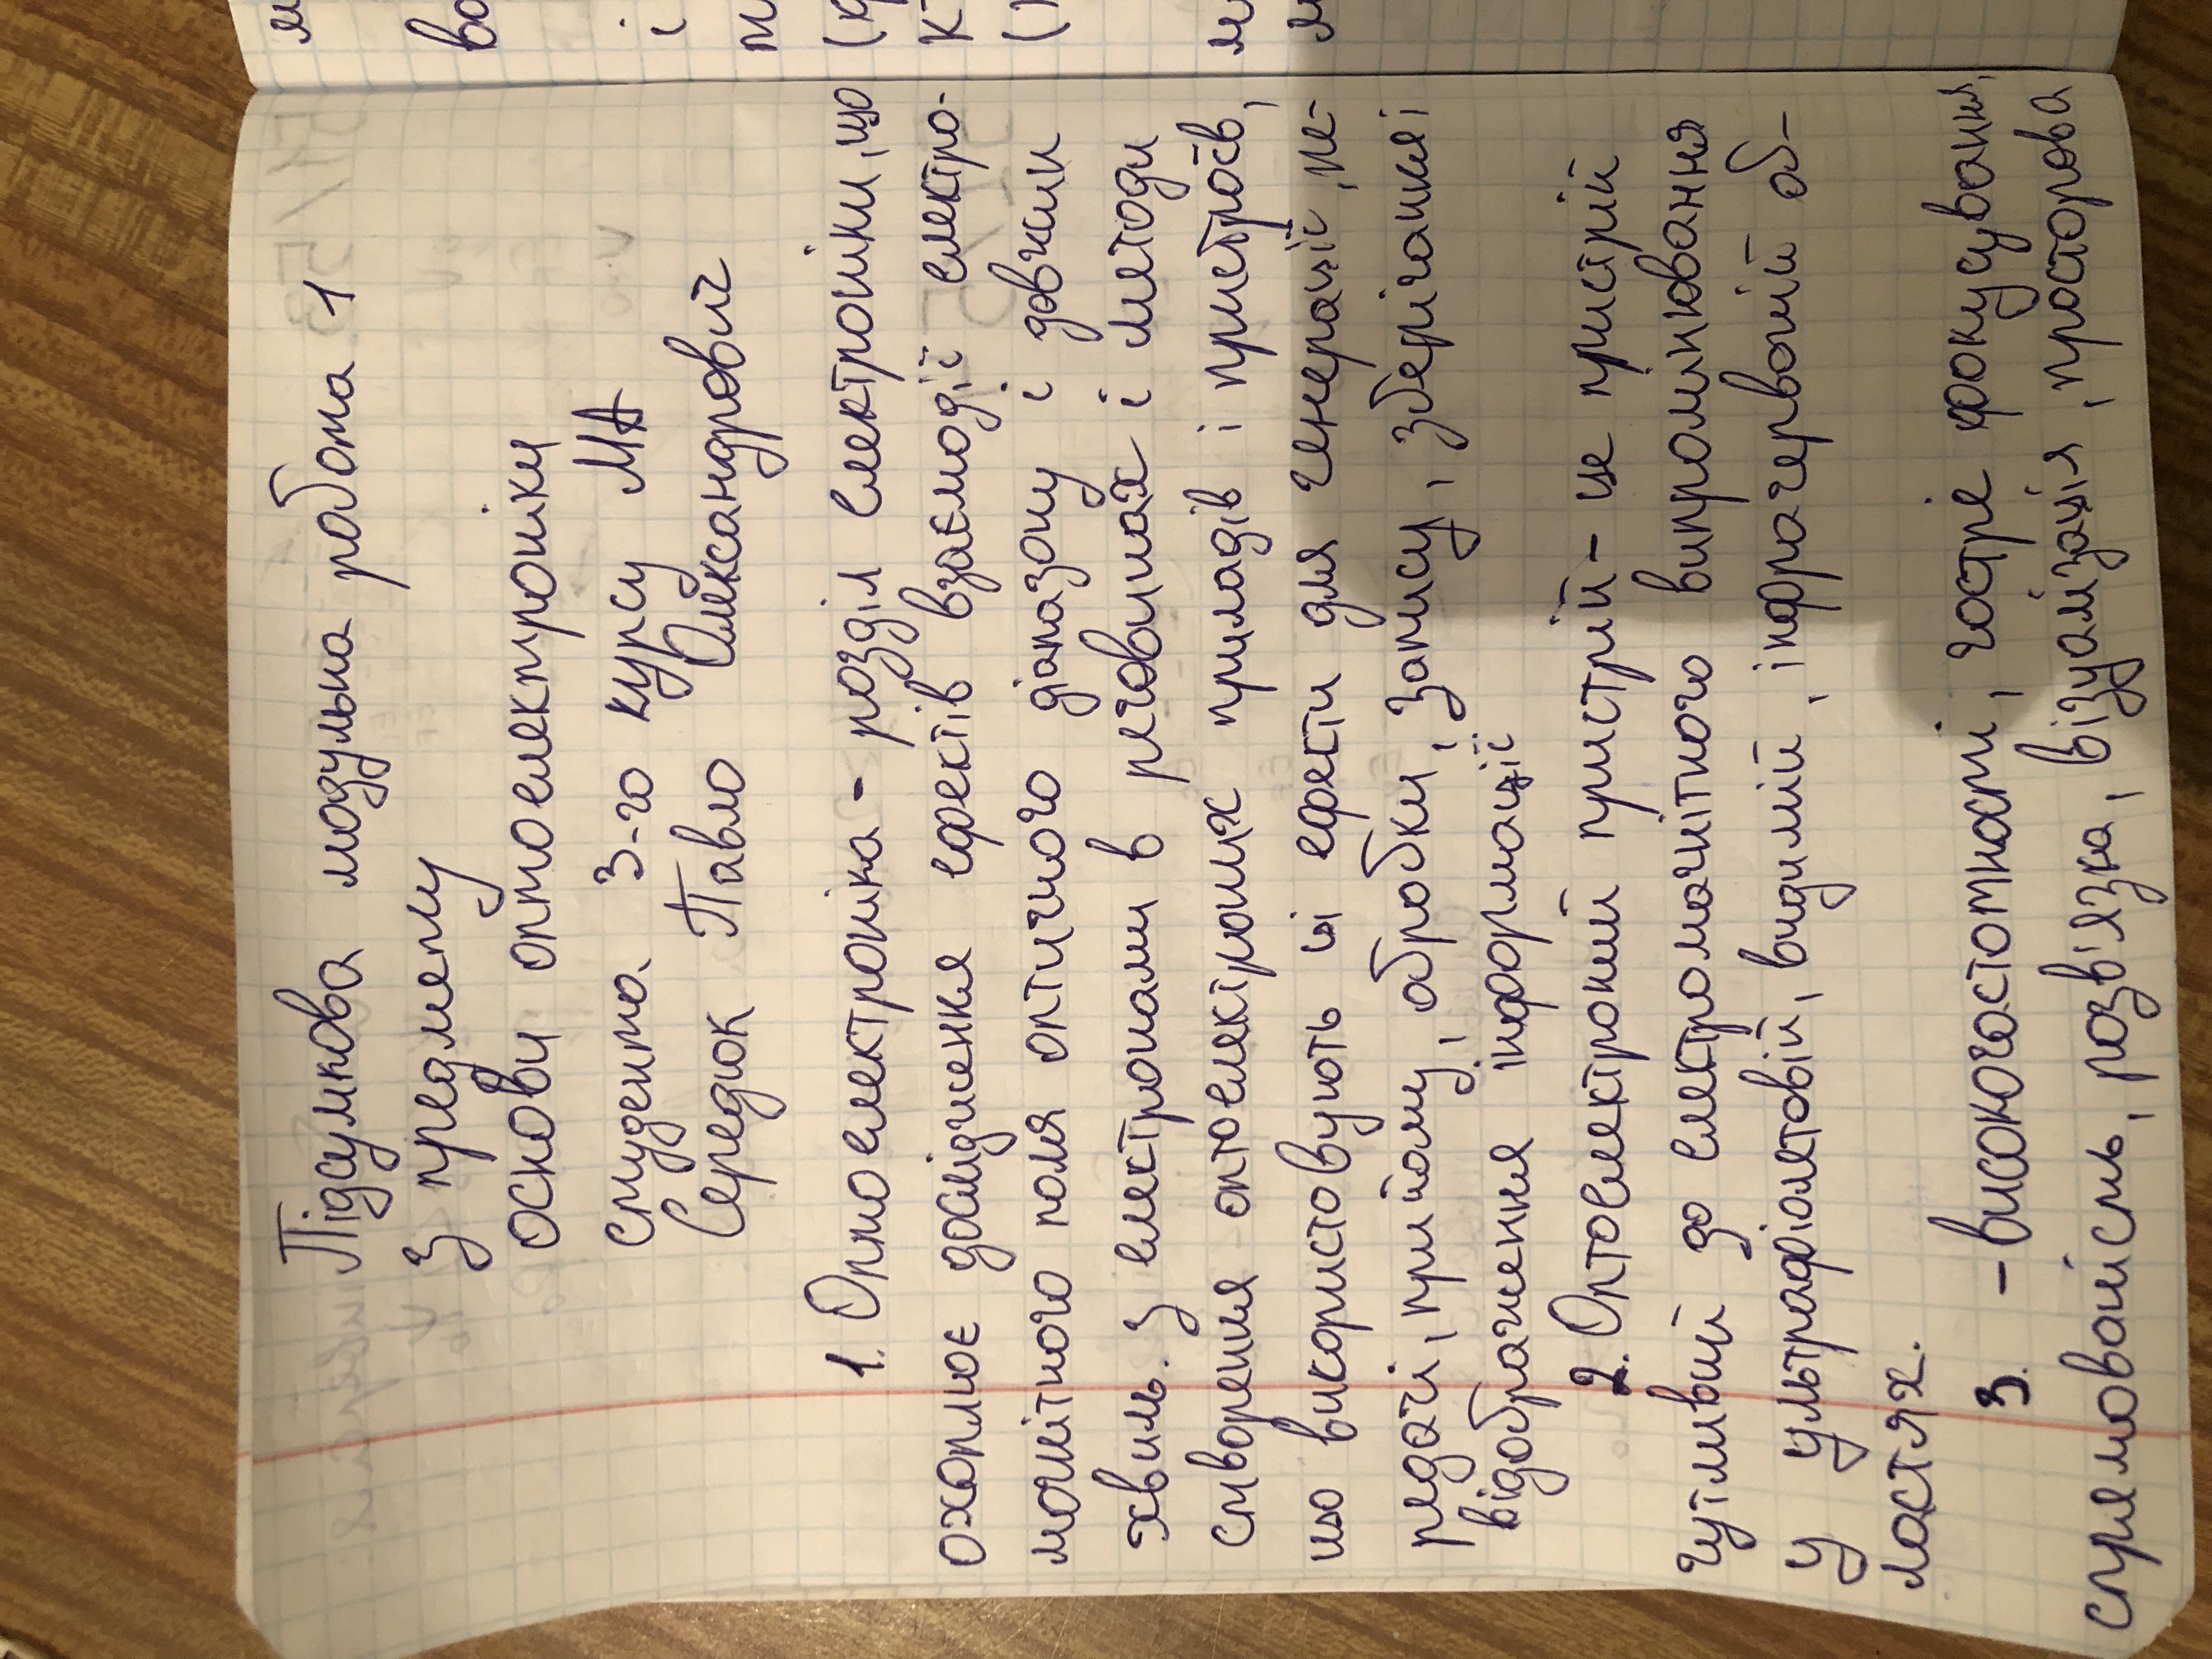 Підсумкова модульна робота 1
З предмету
основи оптоелектроніки
студента 3-го курсу МА
Середюк Павло Олександрович
1. Оптоелектроніка - розділ електроніки, що
охоплює дослідження ефектів взаємодії електро-
магнітного поля оптичного діапазону і довжин
хвиль. з електронами в речовинах і методи
створення оптоелектроних приладів і пристроїв,
що використовують ці ефекти для генерації, пе-
редачі, прийому, обробки, запису, зберігання і
відображення інформації
2. Оптоелектроний пристрій - це пристрій
чутливий до електромагнітного випромінювання
у ультрафіолетовій, видимій, інфрачервоній об-
ластях.
3. - високочастотності, гостре фокусування,
спрямованість, розв'язка, візуалізація, просторова